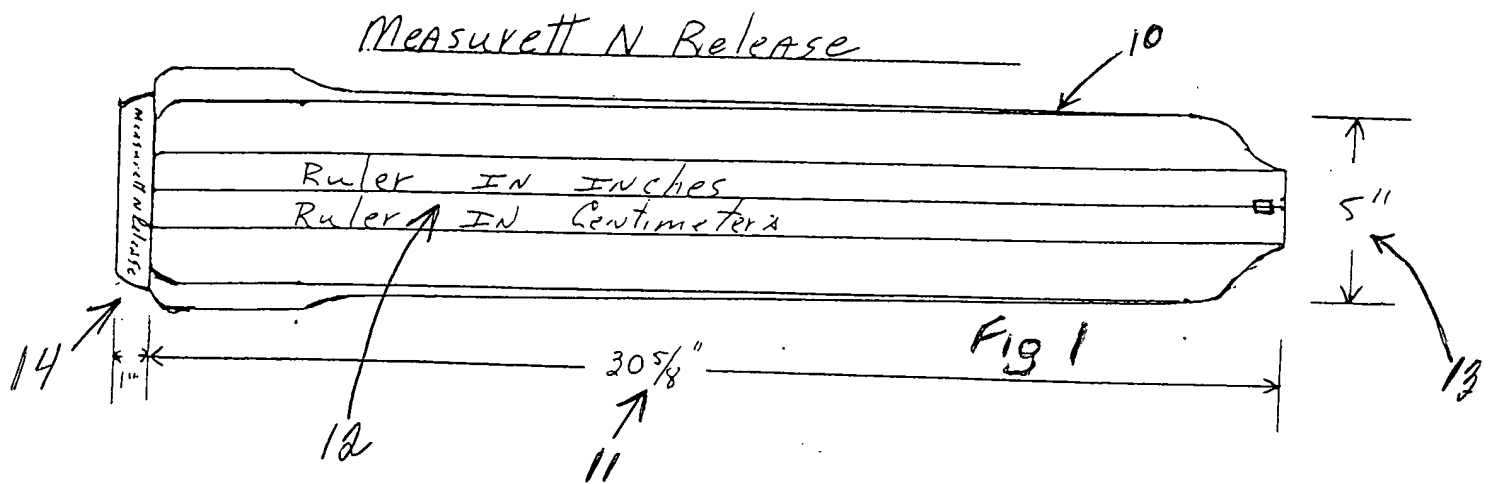 Measurett N Release
10
Measurett N Release
Ruler IN Inches
Ruler IN Centimeters
5"
13
14
1"
12
30 5/8"
11
Fig 1